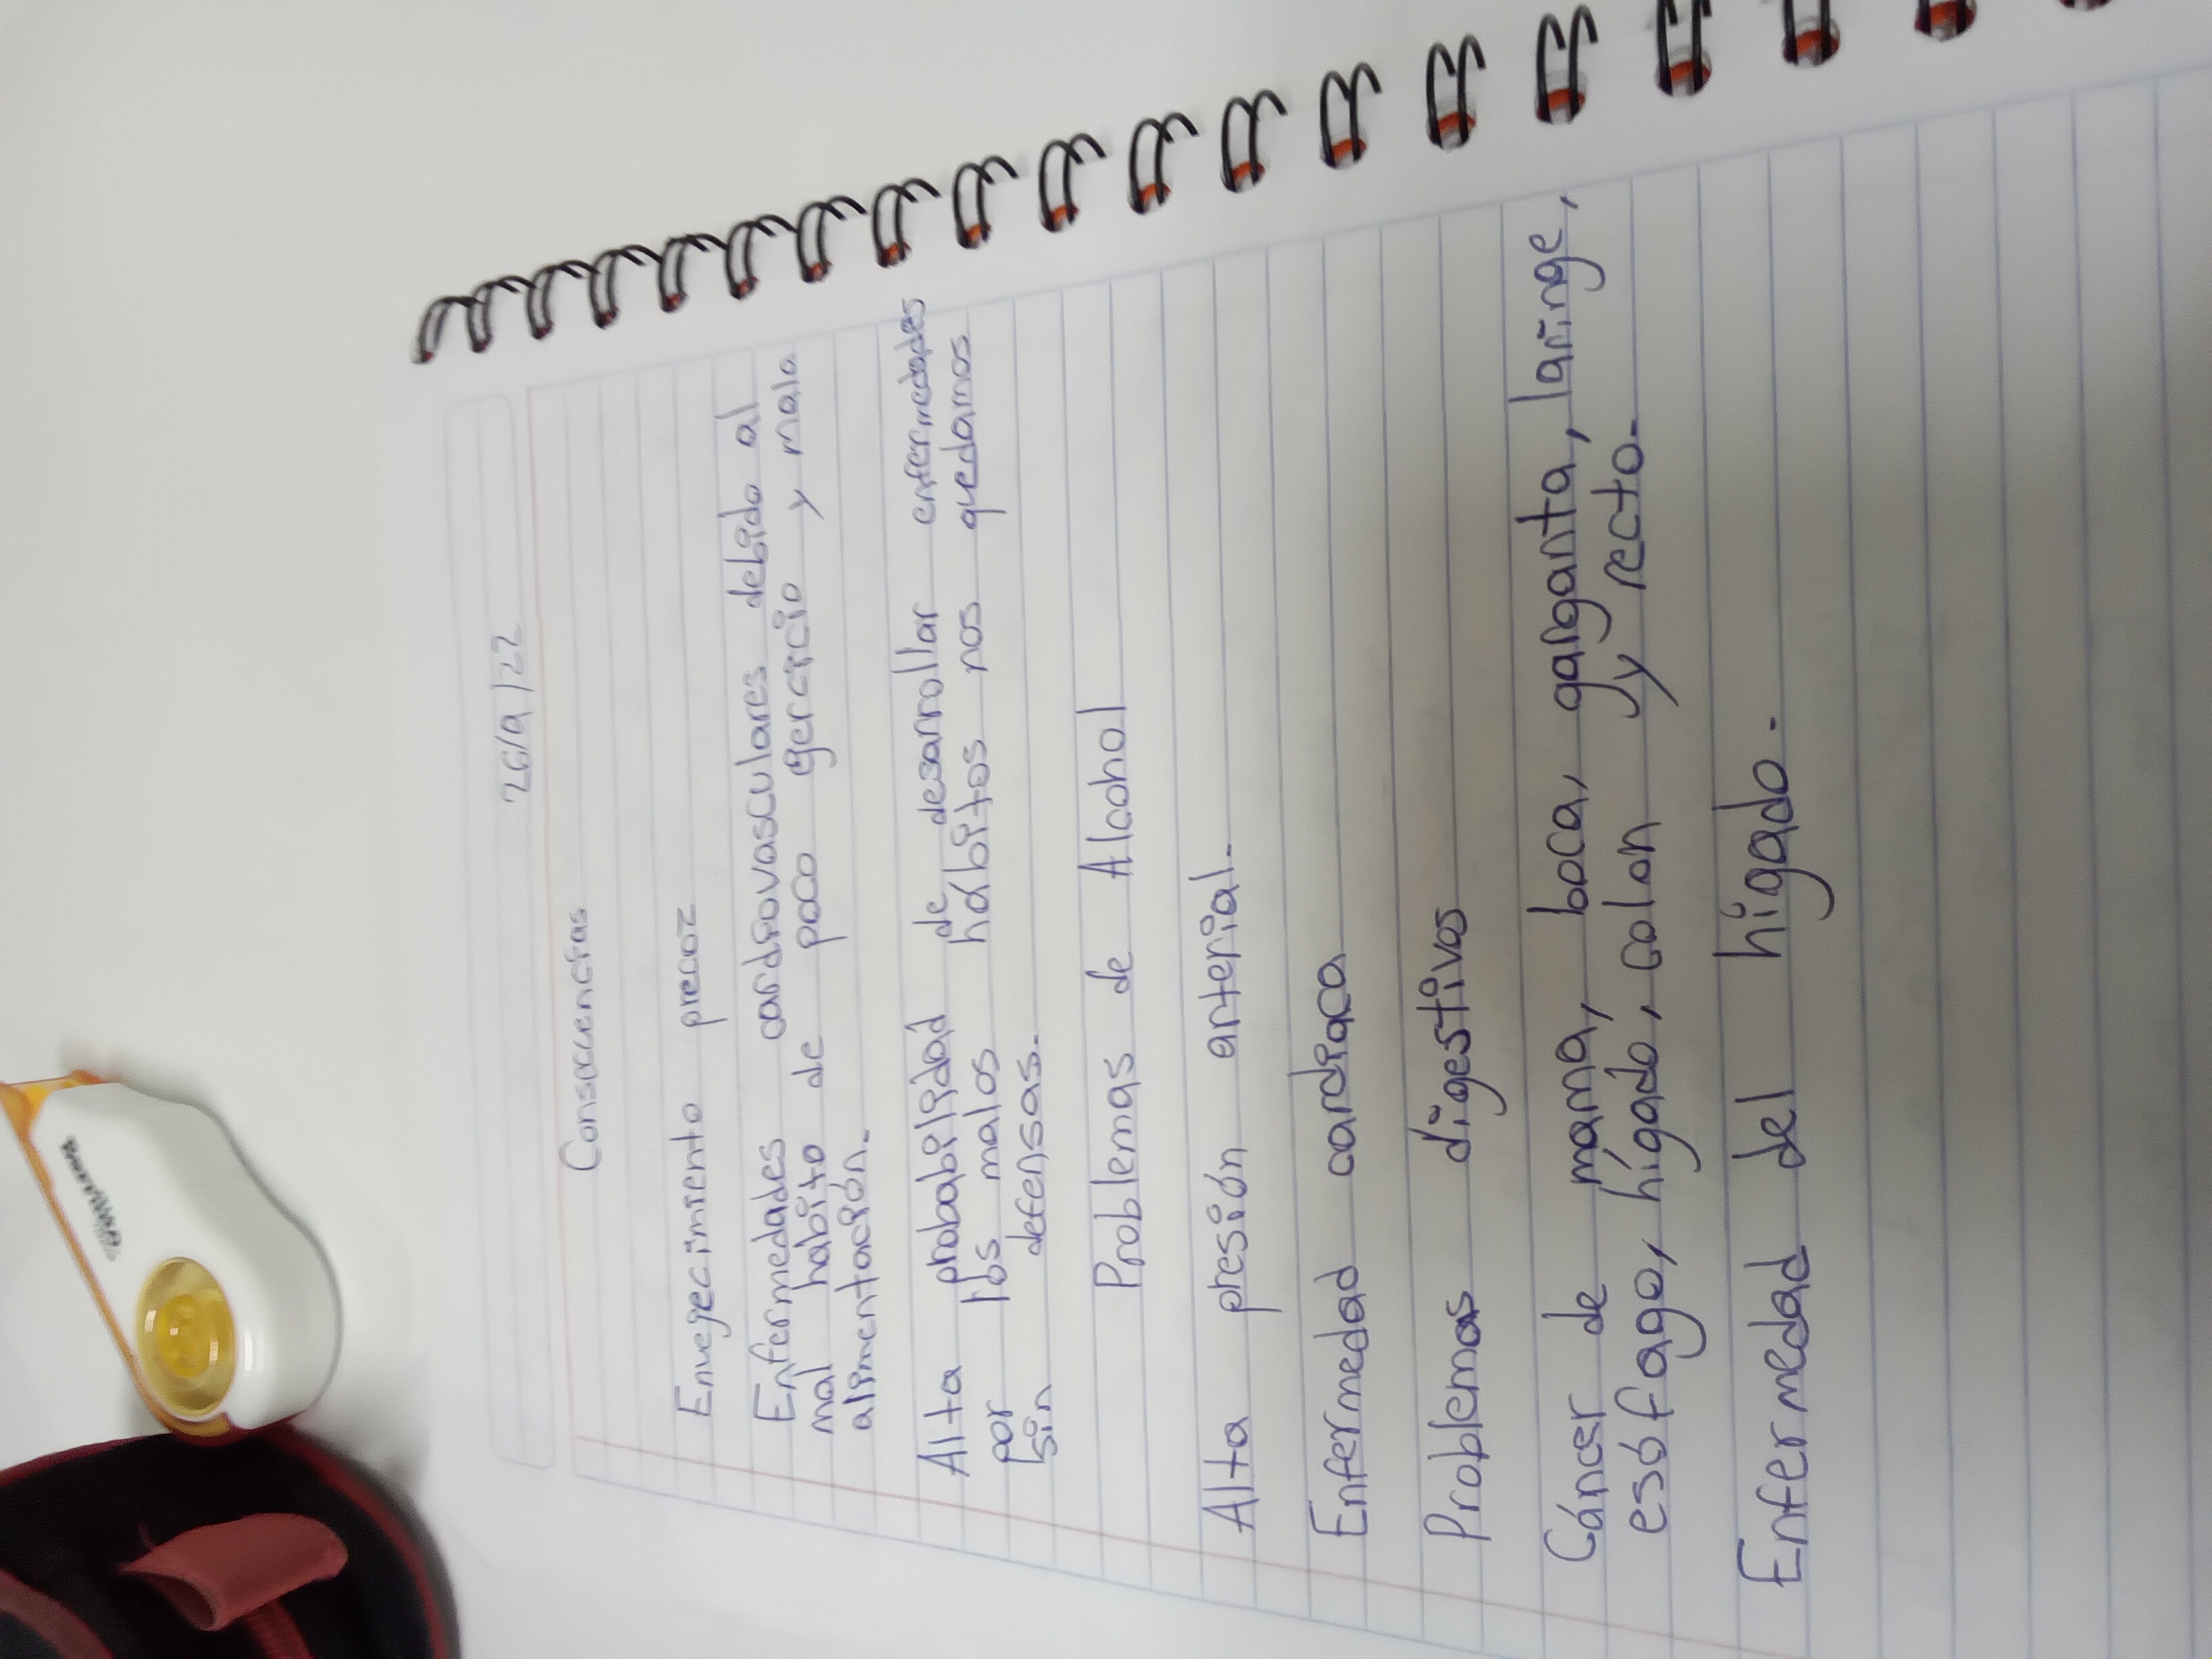 26/9/22
Consecuencias
Envegecimiento precoz
Enfermedades cardiovasculares debido al
mal habito de poco ejercicio y mala
alimentación.
Alta probabilidad de desarrollar enfermedades
por los malos hábitos nos quedamos
sin defensas.
Problemas de Alcohol
Alta presión arterial.
Enfermedad cardiaca
Problemas digestivos
Cáncer de mama, boca, garganta, laringe,
esófago, hígado, colon y recto.
Enfermedad del hígado.